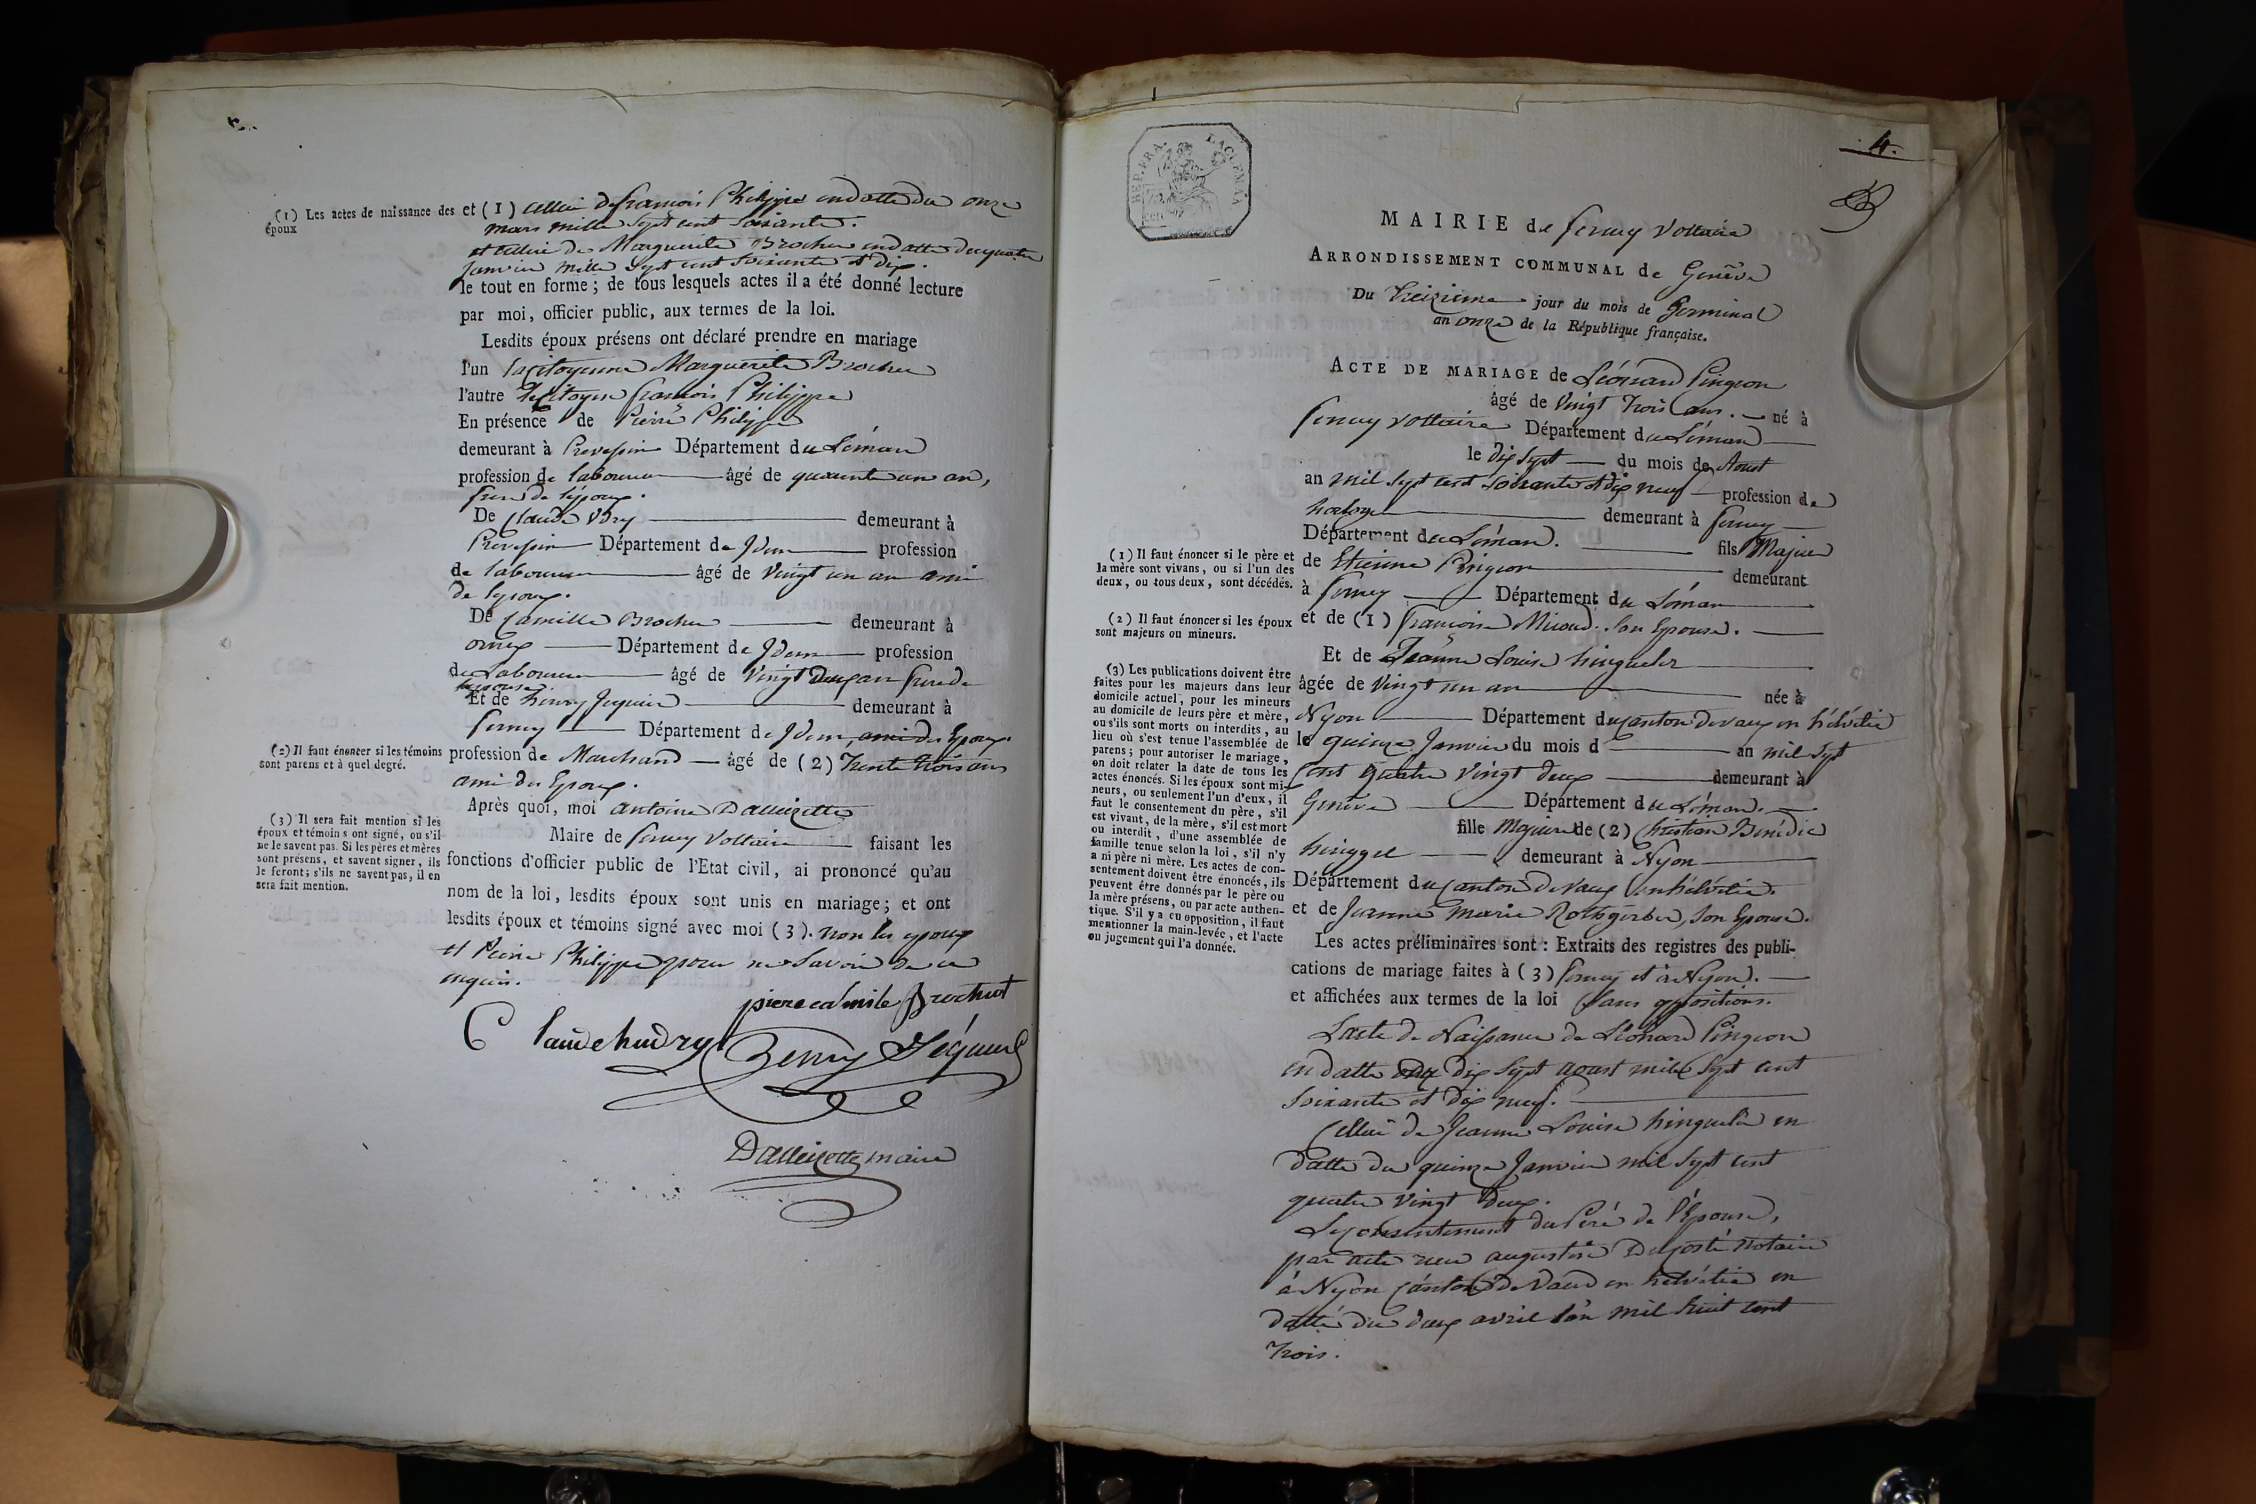 (1) Les actes de naissance des
époux
et (1) celui de francois Philippe en datte du onze
mars mille sept cent soixante.
et celui de Marguerite Brochu en datte du quatre
janvier mille sept cent soixante et dix.
le tout en forme; de tous lesquels actes il a été donné lecture
par moi, officier public, aux termes de la loi.
Lesdits époux présens ont déclaré prendre en mariage
l'un la citoyenne Marguerite Brochu
l'autre le citoyen francois Philippe
En présence de Pierre Philippe
demeurant à Prevessin Département du Léman
profession de laboureur âgé de quarante un an,
frere de l'époux.
De Claude Udry demeurant à
Prevessin Département de Idem profession
de laboureur âgé de vingt un an ami
de lepoux.
De Camille Brochu demeurant à
ornex Département de Idem profession
de Laboureur âgé de vingt deux an frere de
lepouse
Et de henry Jequier demeurant à
ferney Département de Idem, ami des Epoux
(2) Il faut énoncer si les témoins
sont parens et à quel degré.
profession de Marchand âgé de (2) trente trois ans
ami des Epoux.
Après quoi, moi antoine Dalleizette
Maire de ferney Voltaire faisant les
(3) Il sera fait mention si les
époux et témoins ont signé, ou s'il
ne le savent pas. Si les pères et mères
sont présens, et savent signer, ils
le feront; s'ils ne savent pas, il en
sera fait mention.
fonctions d'officier public de l'Etat civil, ai prononcé qu'au
nom de la loi, lesdits époux sont unis en mariage; et ont
lesdits époux et témoins signé avec moi (3). non les epoux
et Pierre Philippe pour ne savoir de ce
enquis.
piere camile Brochut
Claude hudry Henry Jéquier
Dalleizette maire
REP. FRA.
4.
MAIRIE de ferney Voltaire
ARRONDISSEMENT COMMUNAL de Genêve
Du treizieme jour du mois de Germinal
an onze de la République française.
ACTE DE MARIAGE de Léonard Pingeon
âgé de vingt trois ans. né à
ferney voltaire Département du Léman
le dix sept du mois de Aout
an mil sept cent soixante et dix neuf profession de
horloger demeurant à ferney
Département du Léman. fils Majeur
(1) Il faut énoncer si le père et
la mère sont vivans, ou si l'un des
deux, ou tous deux, sont décédés.
de Etienne Pingeon demeurant
à ferney Département du Léman
(2) Il faut énoncer si les époux
sont majeurs ou mineurs.
et de (1) francoise Miroud son Epouse.
Et de Jeanne Louise hingueler
(3) Les publications doivent être
faites pour les majeurs dans leur
domicile actuel, pour les mineurs
au domicile de leurs père et mère,
ou s'ils sont morts ou interdits, au
lieu où s'est tenue l'assemblée de
parens; pour autoriser le mariage,
on doit relater la date de tous les
actes énoncés. Si les époux sont mi-
neurs, ou seulement l'un d'eux, il
faut le consentement du père, s'il
est vivant, de la mère, s'il est mort
ou interdit, d'une assemblée de
famille tenue selon la loi, s'il n'y
a ni père ni mère. Les actes de con-
sentement doivent être énoncés, ils
peuvent être donnés par le père ou
la mère présens, ou par acte authen-
tique. S'il y a eu opposition, il faut
mentionner la main-levée, et l'acte
ou jugement qui l'a donnée.
âgée de vingt un an née à
Nyon Département du canton de vaux en hélvétie
le quinze Janvier du mois d an mil sept
cent quatre vingt deux demeurant à
Genève Département du Léman.
fille Majeure de (2) christian Benédic
hinggel demeurant à Nyon
Département du canton de vaux en hélvétie
et de Jeanne Marie Rothgerber, son Epouse.
Les actes préliminaires sont: Extraits des registres des publi-
cations de mariage faites à (3) ferney et à Nyon.
et affichées aux termes de la loi sans oppositions.
Lacte de Naissance de Léonard Pingeon
en datte du dix sept aoust mille sept cent
soixante et dix neuf.
Cellui de Jeanne Louise hinguelr en
datte du quinze Janvier mil sept cent
quatre vingt deux.
Le consentement du Peré de l'Epouse,
par acte reçu augustin notaire
à Nyon Canton de Vaud en helvétie en
datte du deux avril l'an mil huit cent
trois.